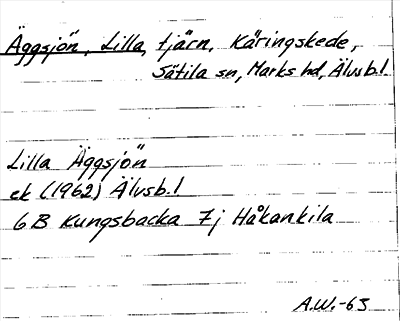 Äggsjön, Lilla, tjärn, Käringskede,
Sätila sn, Marks hd, Älvsb.l.
Lilla Äggsjön
ek (1962) Älvsb.l
6B Kungsbacka 7j Håkankila
A.W.-63